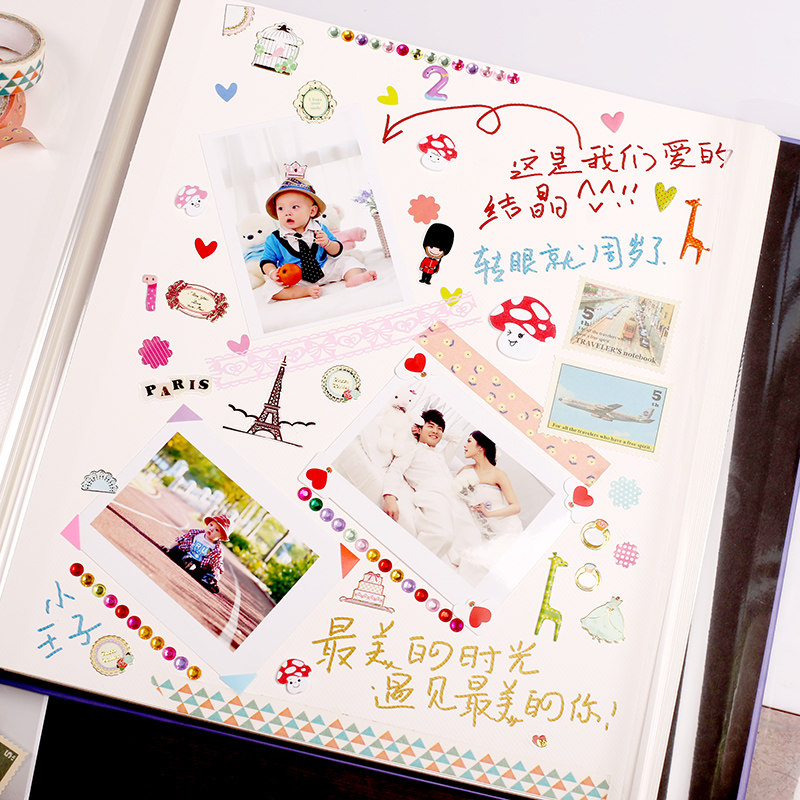 2
这是我们爱的
结晶^^!!
转眼就周岁了
5
th
TRAVELER'S notebook
5
th
For all the travelers who have a free spirit.
PARIS
小
王子
最美的时光
遇见最美的你!